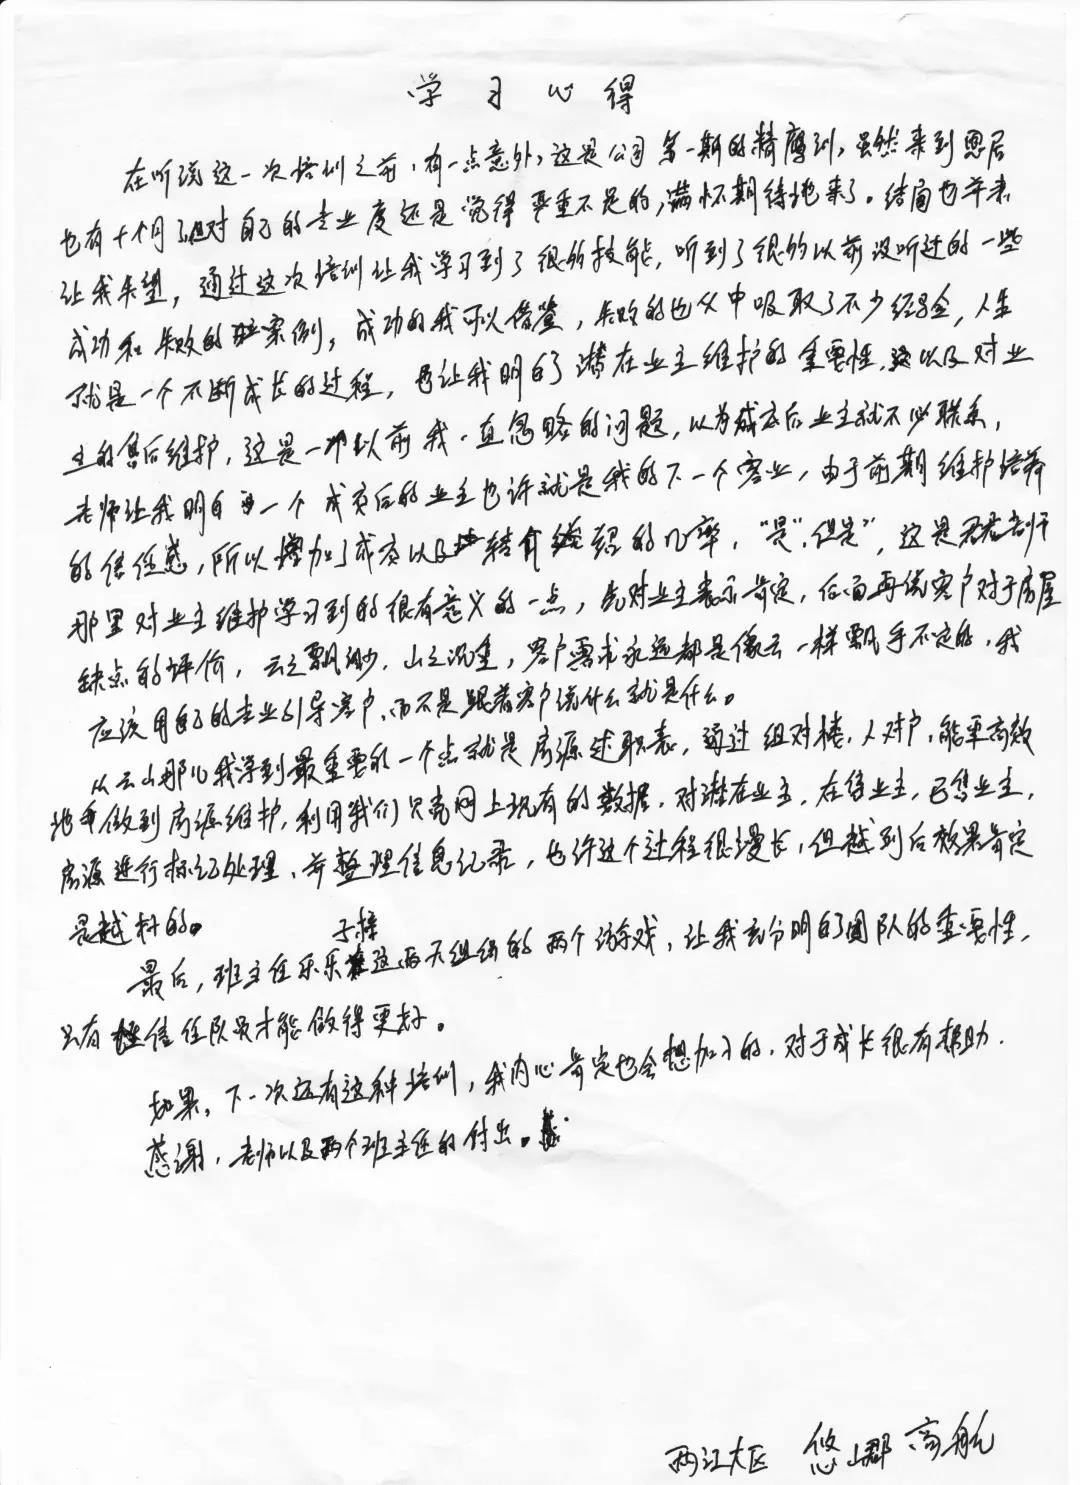 学习心得
在听说这一次培训之前，有一点意外，这是公司第一期的精鹰训，虽然来到恩居
也有十个月了但对自己的专业度还是觉得严重不足的，满怀期待地来了。结局也并未
让我失望，通过这次培训让我学习到了很多技能，听到了很多以前没听过的一些
成功和失败的案例，成功的我可以借鉴，失败的也从中吸取了不少经验，人生
就是一个不断成长的过程，也让我明白了潜在业主维护的重要性，以及对业
主的售后维护，这是一个以前我一直忽略的问题，以为成交后业主就不必联系，
老师让我明白一个成交后的业主也许就是我的下一个客业，由于前期维护培养
的信任感，所以增加了成交以及转介绍的几率，“是”，“但是”，这是君君老师
那里对业主维护学习到的很有意义的一点，先对业主表示肯定，后面再说客户对于房屋
缺点的评价，云之飘渺，山之沉重，客户需求永远都是像云一样飘乎不定的，我
应该用自己的专业引导客户，而不是跟着客户说什么就是什么。
从云山那儿我学到最重要的一个点就是房源述职表，通过组对楼，人对户，能更高效
地做到房源维护，利用我们只亮网上现有的数据，对潜在业主，在售业主，已售业主，
房源进行标记处理，并整理信息记录，也许这个过程很漫长，但越到后效果肯定
是越好的。
最后，班主任乐乐子梓这两天组织的两个游戏，让我充分明白了团队的重要性，
只有信任队员才能做得更好。
如果，下一次还有这种培训，我内心肯定也会想加入的，对于成长很有帮助．
感谢，老师以及两个班主任的付出。
两江大区 悠山郡 高航